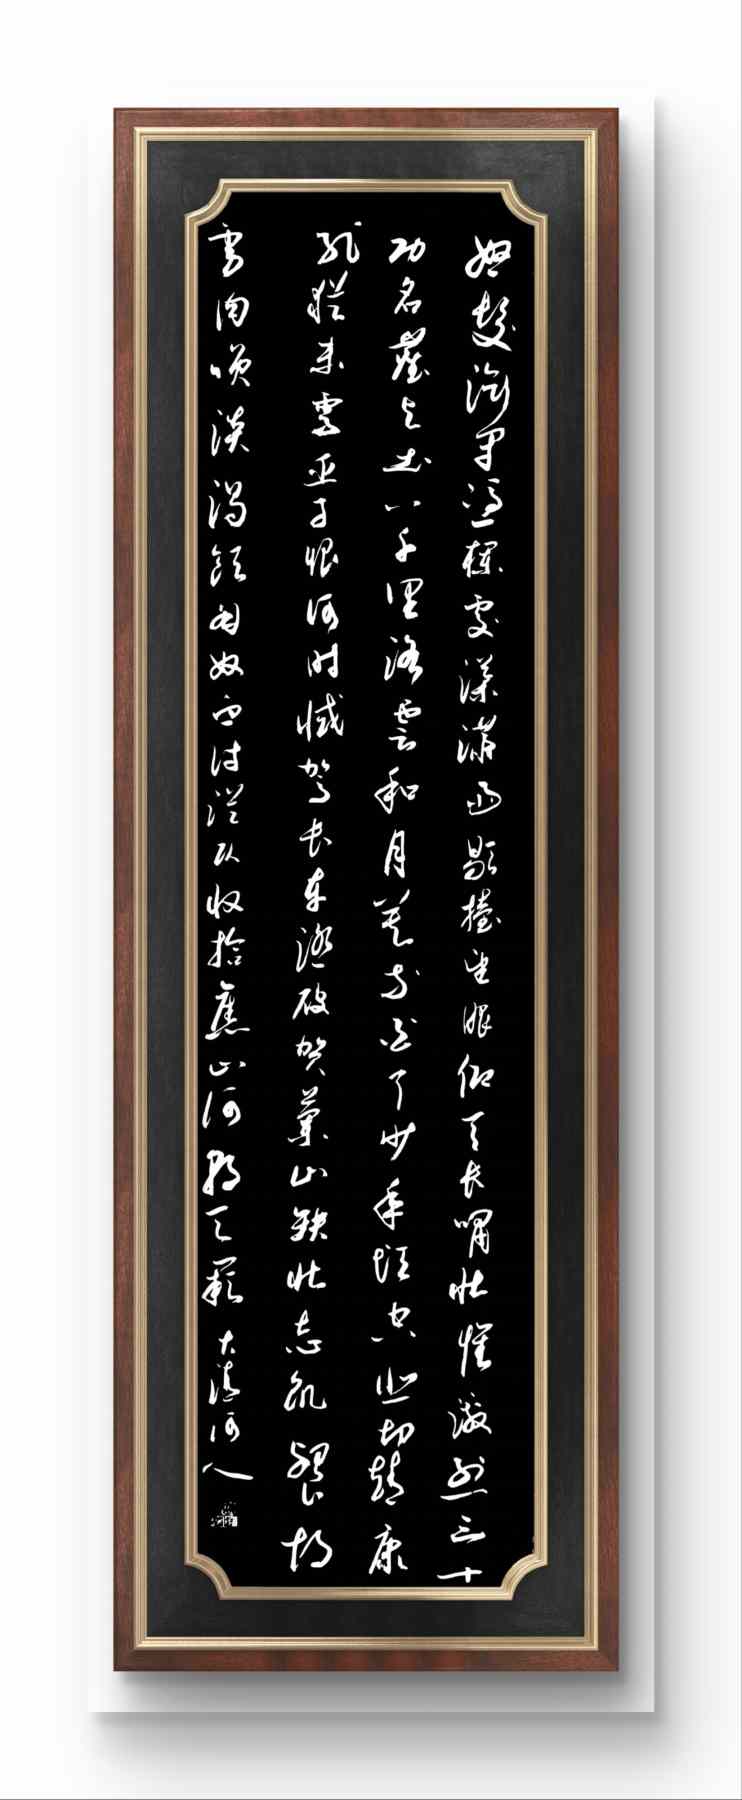 怒髮衝冠憑欄處瀟瀟雨歇擡望眼仰天長嘯壯懷激烈三十
功名塵与土八千里路雲和月莫等閒白了少年頭空悲切靖康
恥猶未雪臣子恨何時滅駕長車踏破賀蘭山缺壯志飢餐胡
虜肉笑談渴飲匈奴血待從頭收拾舊山河朝天闕
大清河人